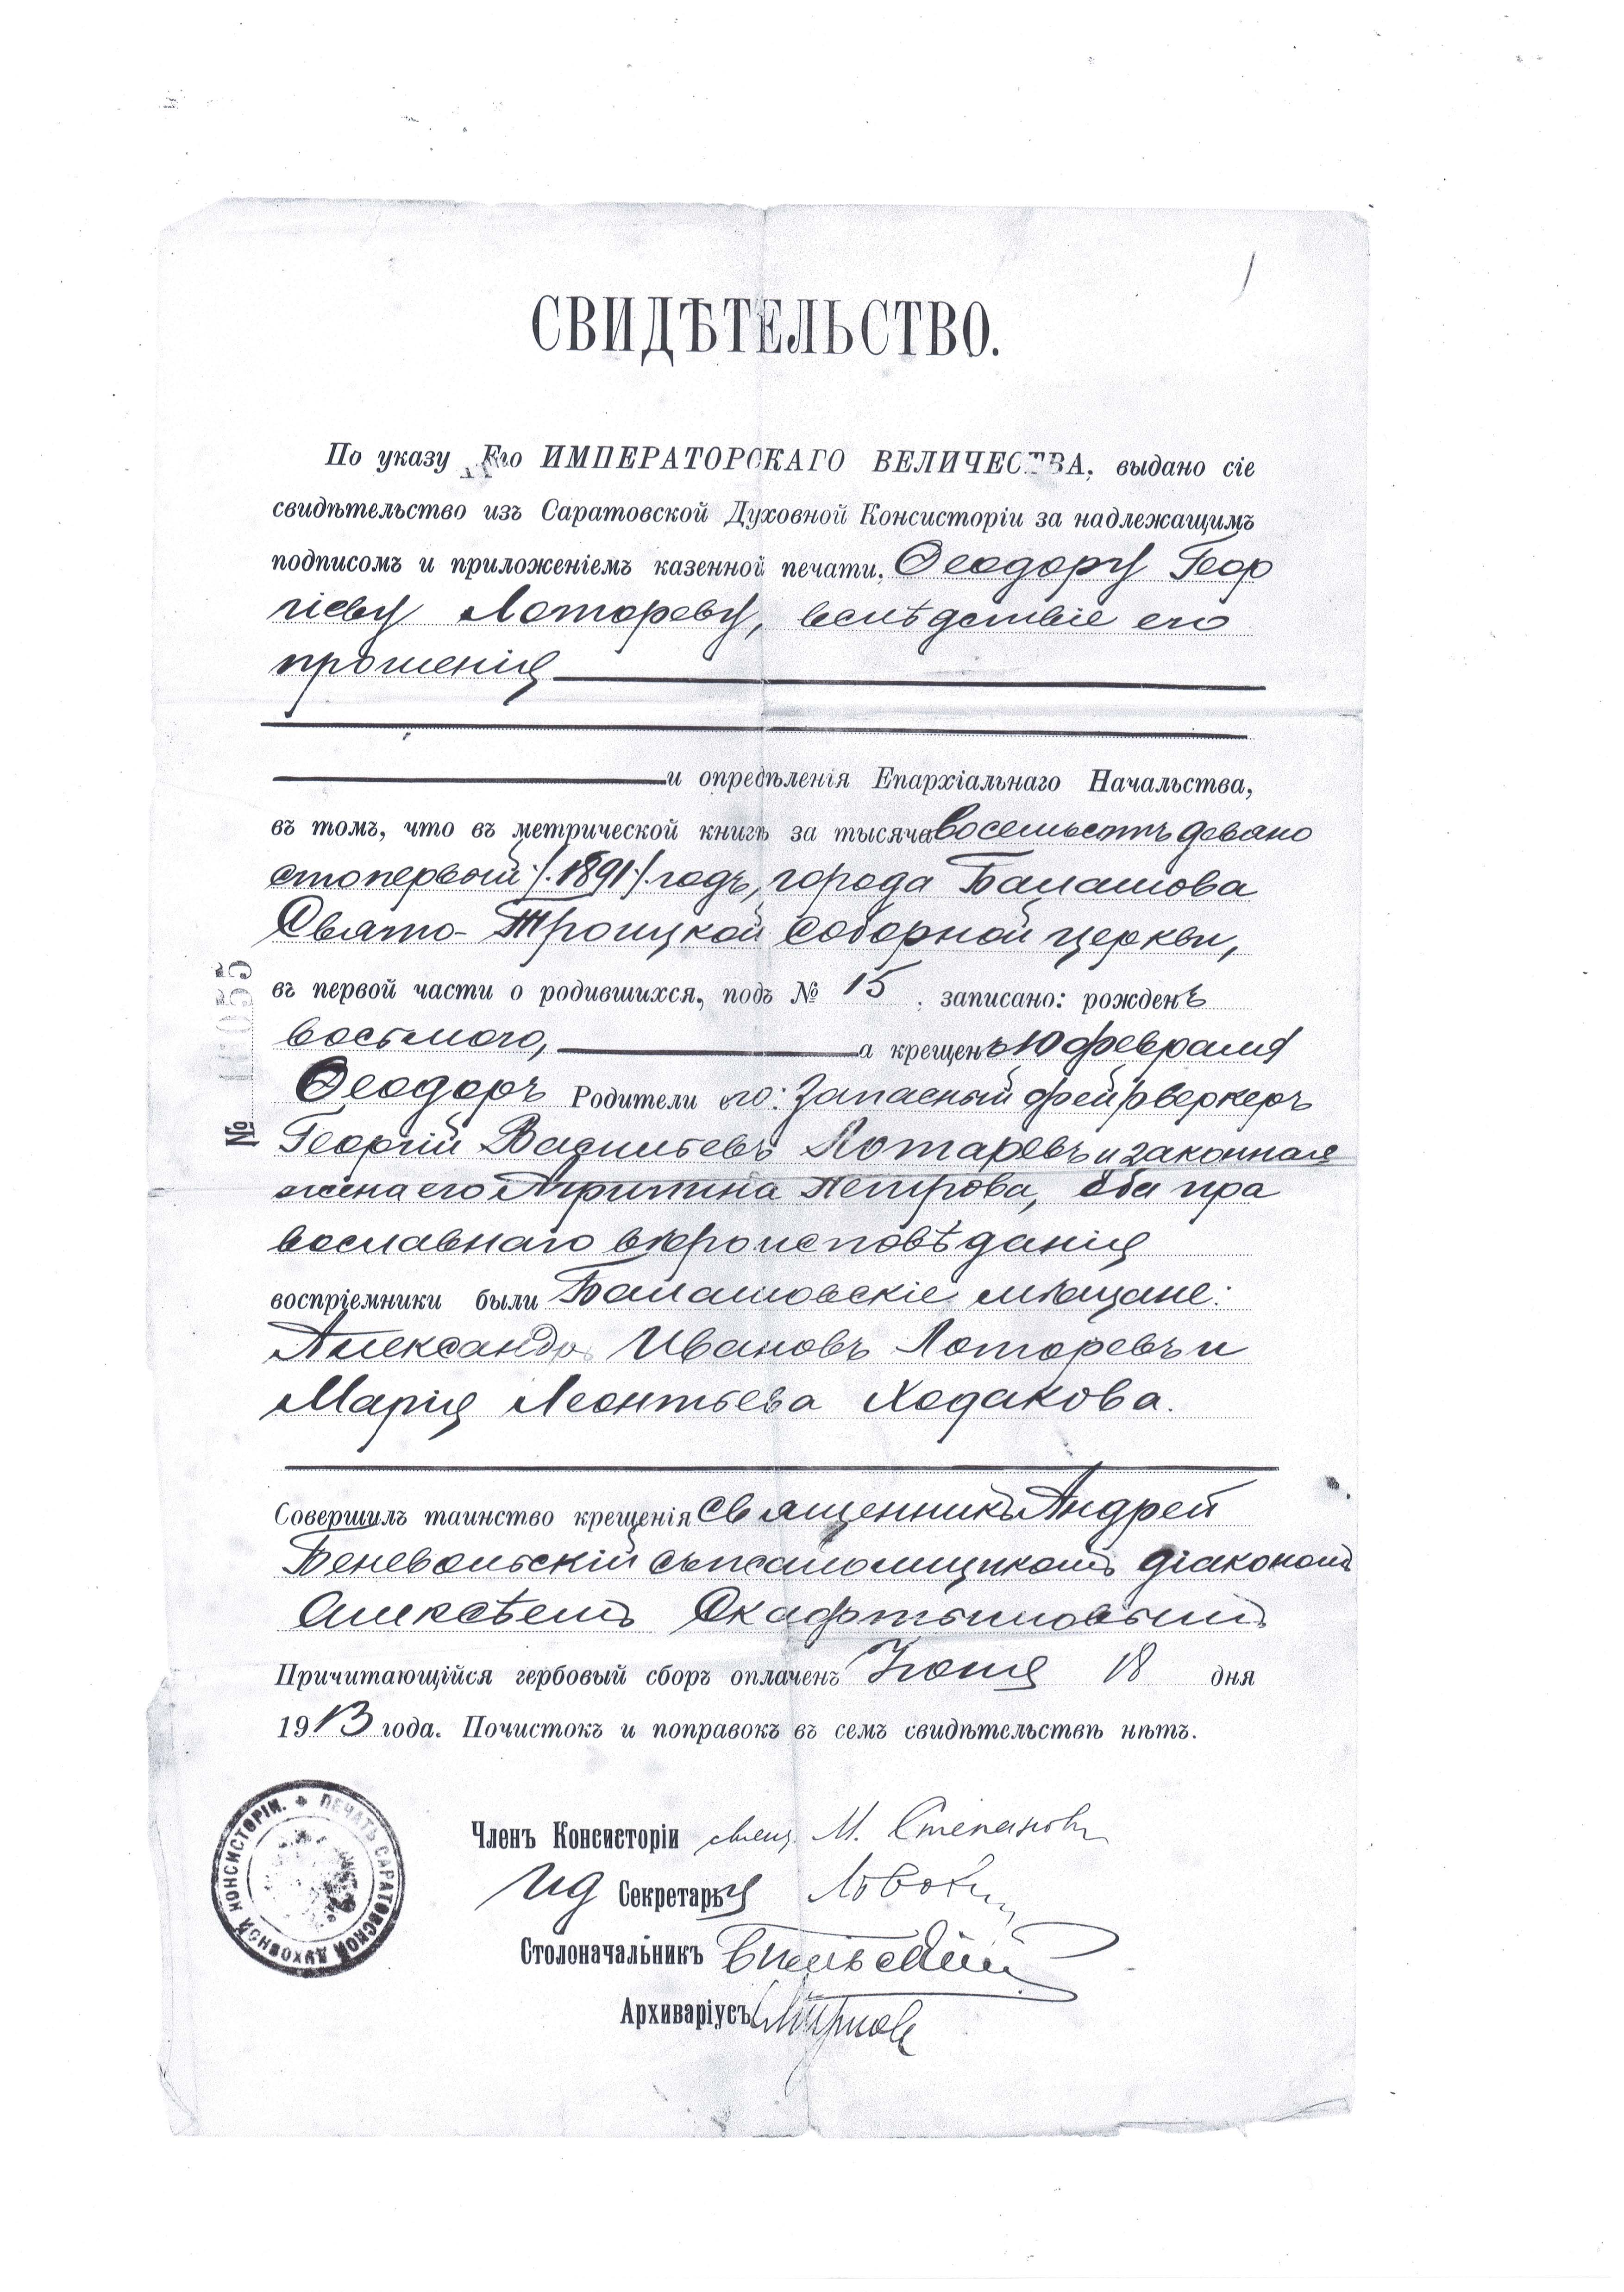 СВИДѢТЕЛЬСТВО.
По указу Его ИМПЕРАТОРСКАГО ВЕЛИЧЕСТВА, выдано сіе
свидѣтельство изъ Саратовской Духовной Консисторіи за надлежащимъ
подписомъ и приложеніемъ казенной печати, Ѳеодору Геор
гіеву Лотареву, вслѣдствіе его
прошенія
и опредѣленія Епархіальнаго Начальства,
въ томъ, что въ метрической книгѣ за тысяча восемьсотъ девяно
сто первый /.1891./ годъ, города Балашова
Свято-Троицкой соборной церкви,
въ первой части о родившихся, подъ № 15, записано: рожденъ
восьмого, а крещенъ 10 февраля
Ѳеодоръ Родители его: Запасный фейрверкеръ
Георгій Васильевъ Лотаревъ и законная
жена его Агрипина Петрова, оба пра
вославнаго вѣроисповѣданія
воспріемники были Балашовскіе мѣщане:
Александръ Ивановъ Лотаревъ и
Марія Леонтьева Ходакова.
Совершилъ таинство крещенія священникъ Андрей
Беневольскій съ псаломщикомъ діакономъ
Алексѣемъ Скафтымовымъ.
Причитающійся гербовый сборъ оплаченъ Іюня 18 дня
1913 года. Почистокъ и поправокъ въ семъ свидѣтельствѣ нѣтъ.
№
ПЕЧАТЬ САРАТОВСКОЙ ДУХОВНОЙ КОНСИСТОРІИ.
Членъ Консисторіи свящ. М. Степановъ
И д Секретаря
Столоначальникъ
Архиваріусъ Смирнов